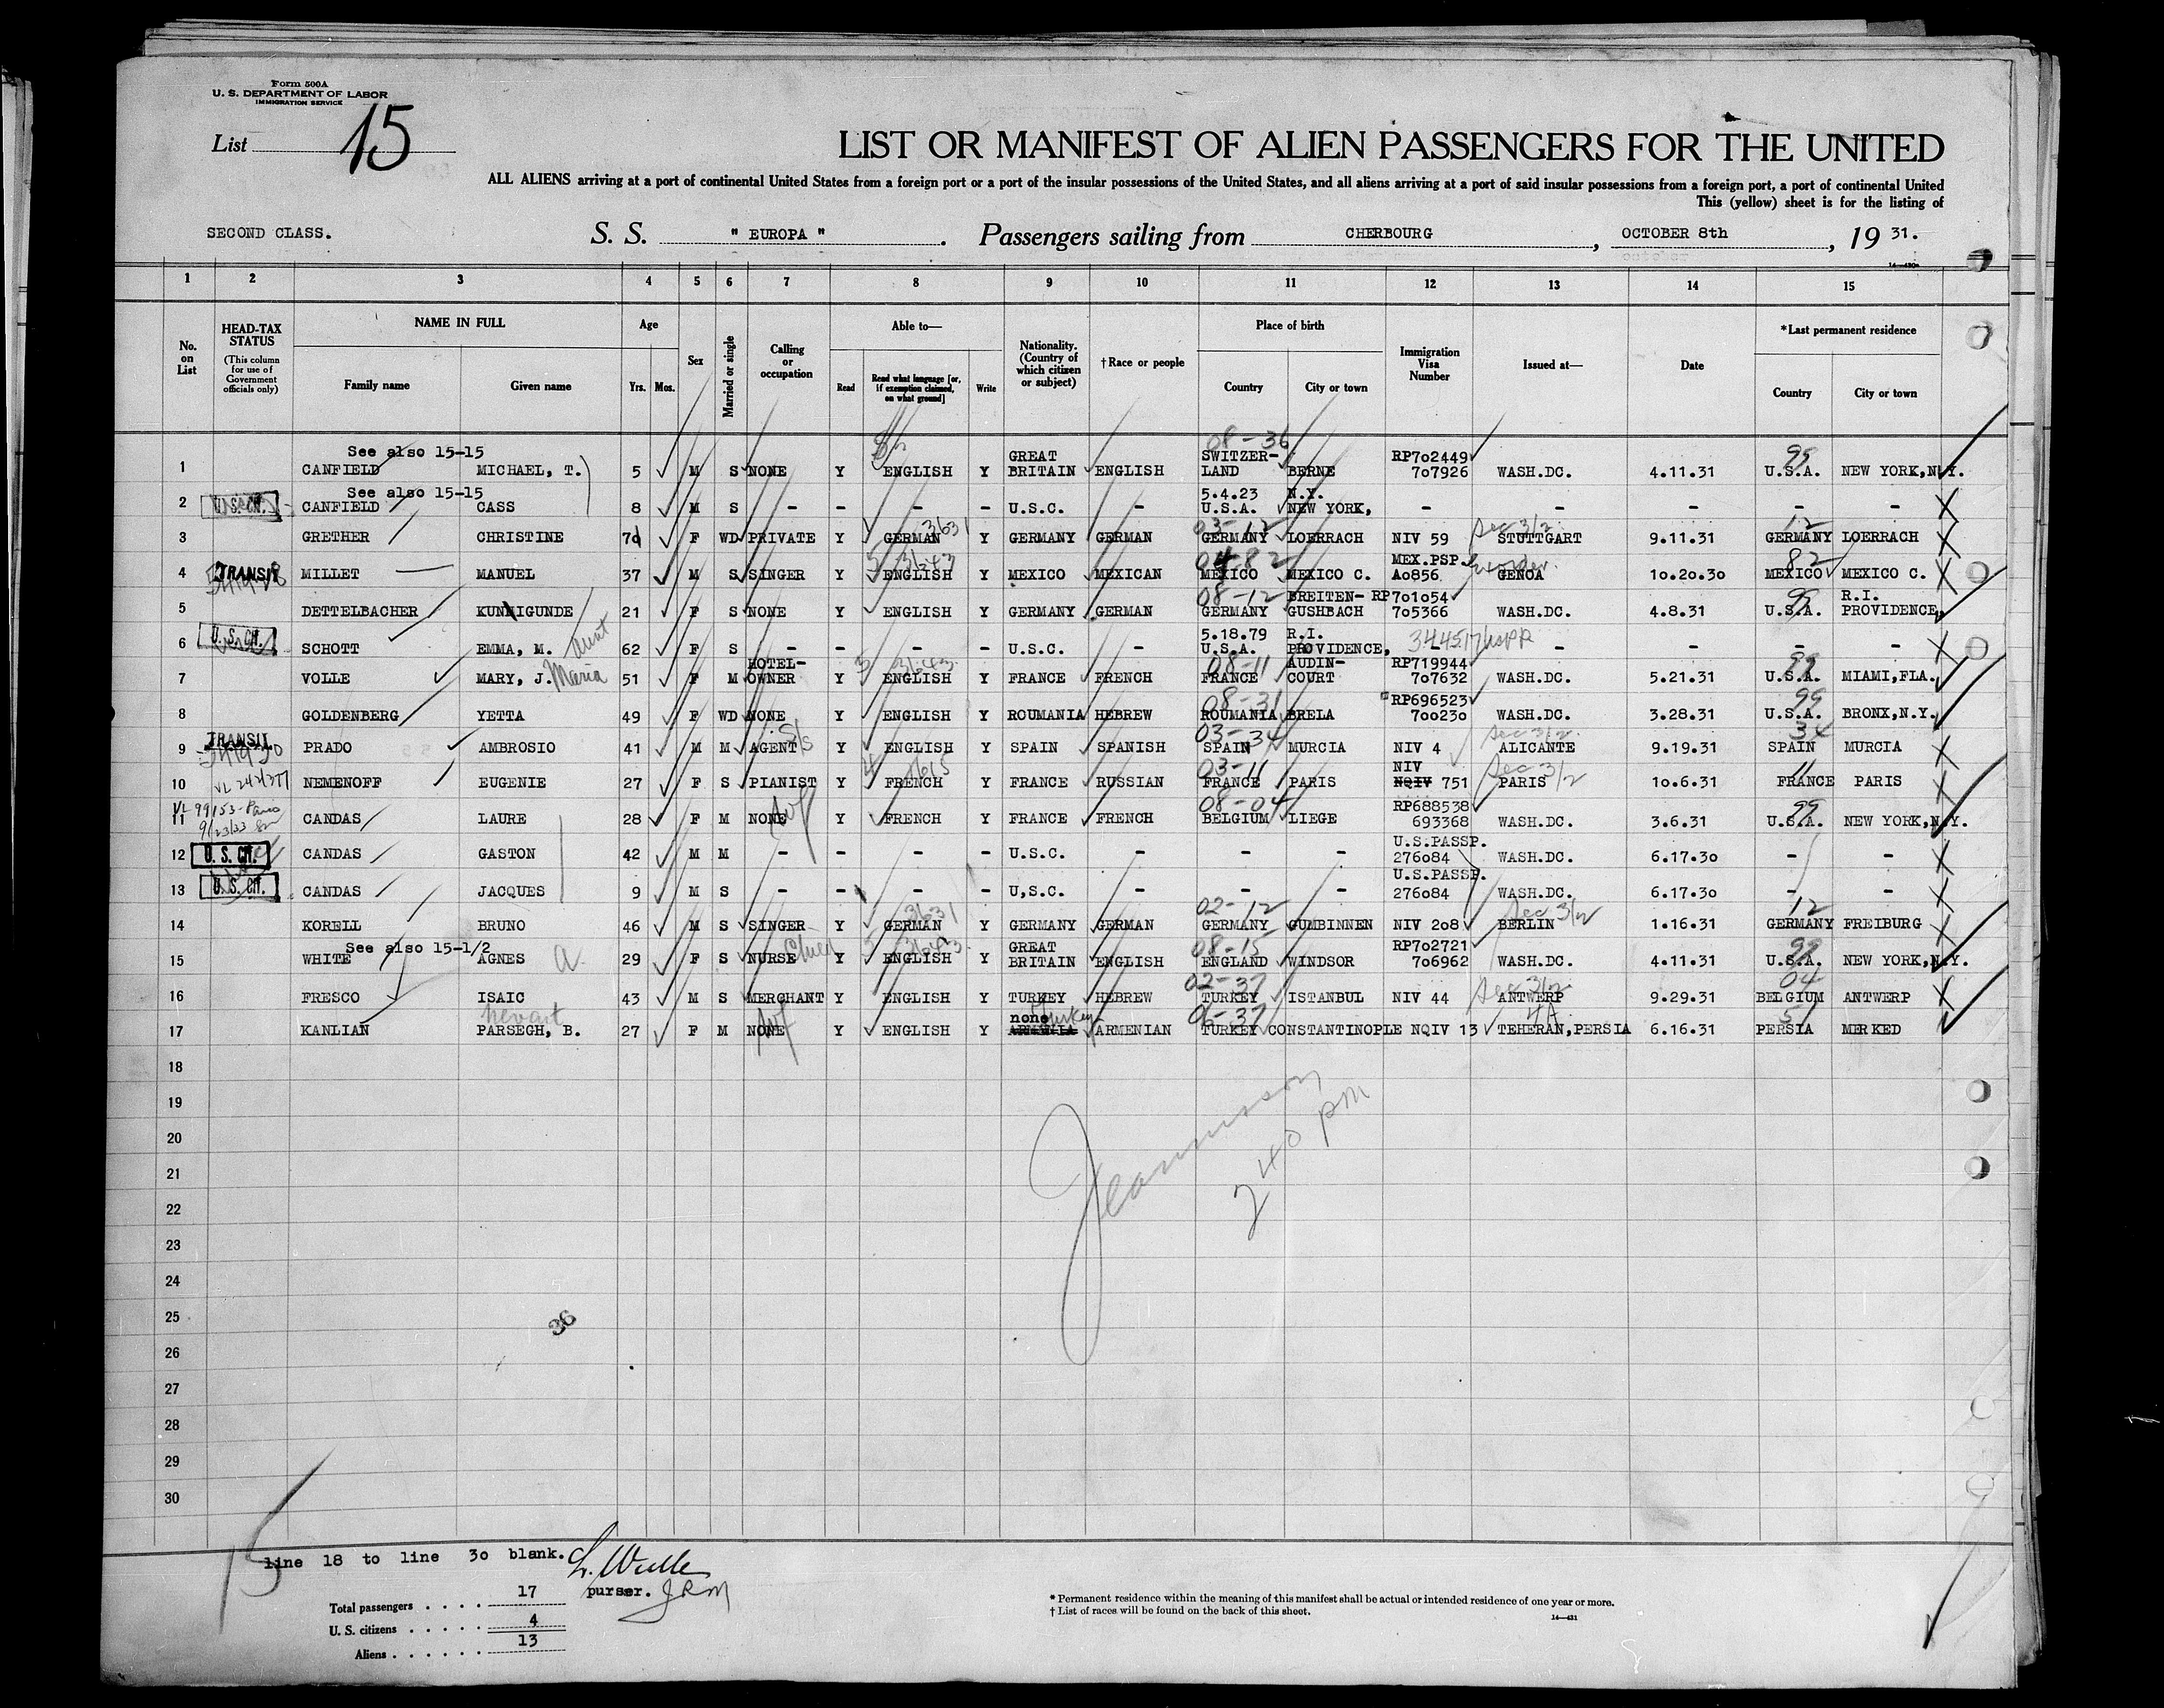 Form 500A
U. S. DEPARTMENT OF LABOR
IMMIGRATION SERVICE
List 15
LIST OR MANIFEST OF ALIEN PASSENGERS FOR THE UNITED
ALL ALIENS arriving at a port of continental United States from a foreign port or a port of the insular possessions of the United States, and all aliens arriving at a port of said insular possessions from a foreign port, a port of continental United
This (yellow) sheet is for the listing of
SECOND CLASS. S. S. " EUROPA " . Passengers sailing from CHERBOURG , OCTOBER 8th , 19 31.
1 2 3 4 5 6 7 8 9 10 11 12 13 14 15
No. on List
HEAD-TAX STATUS (This column for use of Government officials only)
NAME IN FULL Family name Given name
Age Yrs. Mos.
Sex
Married or single
Calling or occupation
Able to— Read Read what language [or, if exemption claimed, on what ground] Write
Nationality. (Country of which citizen or subject)
†Race or people
Place of birth Country City or town
Immigration Visa Number
Issued at—
Date
*Last permanent residence Country City or town
See also 15-15 GREAT 08-36 SWITZER- RP702449 99
1 CANFIELD MICHAEL, T. 5 M S NONE Y ENGLISH Y BRITAIN ENGLISH LAND BERNE 707926 WASH.DC. 4.11.31 U.S.A. NEW YORK,N.Y.
See also 15-15 5.4.23 N.Y.
2 U.S. CIT. CANFIELD CASS 8 M S - - - - U.S.C. - U.S.A. NEW YORK, - - - - -
3631 03-12 Sec 3/2 12
3 GRETHER CHRISTINE 70 F WD PRIVATE Y GERMAN Y GERMANY GERMAN GERMANY LOERRACH NIV 59 STUTTGART 9.11.31 GERMANY LOERRACH
5 3643 04-82 MEX.PSP. 82
4 TRANSIT MILLET MANUEL 37 M S SINGER Y ENGLISH Y MEXICO MEXICAN MEXICO MEXICO C. A0856 GENOA 10.20.30 MEXICO MEXICO C.
08-12 BREITEN- RP701054 99 R.I.
5 DETTELBACHER KUNNIGUNDE 21 F S NONE Y ENGLISH Y GERMANY GERMAN GERMANY GUSHBACH 705366 WASH.DC. 4.8.31 U.S.A. PROVIDENCE,
aunt 5.18.79 R.I.
6 U.S. CIT. SCHOTT EMMA, M. 62 F S - - - - U.S.C. - U.S.A. PROVIDENCE, - - - - -
HOTEL- 3643 08-11 AUDIN- RP719944 99
7 VOLLE MARY, J. Maria 51 F M OWNER Y ENGLISH Y FRANCE FRENCH FRANCE COURT 707632 WASH.DC. 5.21.31 U.S.A. MIAMI,FLA.
08-31 RP696523 99
8 GOLDENBERG YETTA 49 F WD NONE Y ENGLISH Y ROUMANIA HEBREW ROUMANIA BRELA 700230 WASH.DC. 3.28.31 U.S.A. BRONX,N.Y.
TRANSIT 03-34 Sec 3/2 34
9 PRADO AMBROSIO 41 M M AGENT Y ENGLISH Y SPAIN SPANISH SPAIN MURCIA NIV 4 ALICANTE 9.19.31 SPAIN MURCIA
03-11 NIV Sec 3/2 11
10 NEMENOFF EUGENIE 27 F S PIANIST Y FRENCH Y FRANCE RUSSIAN FRANCE PARIS NQIV 751 PARIS 10.6.31 FRANCE PARIS
08-04 RP688538 99
11 CANDAS LAURE 28 F M NONE Y FRENCH Y FRANCE FRENCH BELGIUM LIEGE 693368 WASH.DC. 3.6.31 U.S.A. NEW YORK,N.Y.
U.S.PASSP.
12 U.S. CIT. CANDAS GASTON 42 M M - - - - U.S.C. - - - 276084 WASH.DC. 6.17.30 - -
U.S.PASSP.
13 U.S. CIT. CANDAS JACQUES 9 M S - - - - U,S.C. - - - 276084 WASH.DC. 6.17.30 - -
3631 02-12 Sec 3/2 12
14 KORELL BRUNO 46 M S SINGER Y GERMAN Y GERMANY GERMAN GERMANY GUMBINNEN NIV 208 BERLIN 1.16.31 GERMANY FREIBURG
See also 15-1/2 3643 GREAT 08-15 RP702721 99
15 WHITE AGNES a. 29 F S NURSE Y ENGLISH Y BRITAIN ENGLISH ENGLAND WINDSOR 706962 WASH.DC. 4.11.31 U.S.A. NEW YORK,N.Y.
02-37 Sec 3/2 04
16 FRESCO ISAIC 43 M S MERCHANT Y ENGLISH Y TURKEY HEBREW TURKEY ISTANBUL NIV 44 ANTWERP 9.29.31 BELGIUM ANTWERP
nevart none Turkey 06-37 4A 51
17 KANLIAN PARSEGH, B. 27 F M NONE Y ENGLISH Y ARMENIA ARMENIAN TURKEY CONSTANTINOPLE NQIV 13 TEHERAN,PERSIA 6.16.31 PERSIA MERKED
18
19
20
21
22
23
24
25
26
27
28
29
30
2 40 pm
36
15
line 18 to line 30 blank.
purser. JRM
Total passengers . . . . 17
U. S. citizens . . . . . 4
Aliens . . . . . . 13
* Permanent residence within the meaning of this manifest shall be actual or intended residence of one year or more.
† List of races will be found on the back of this sheet.
14—431